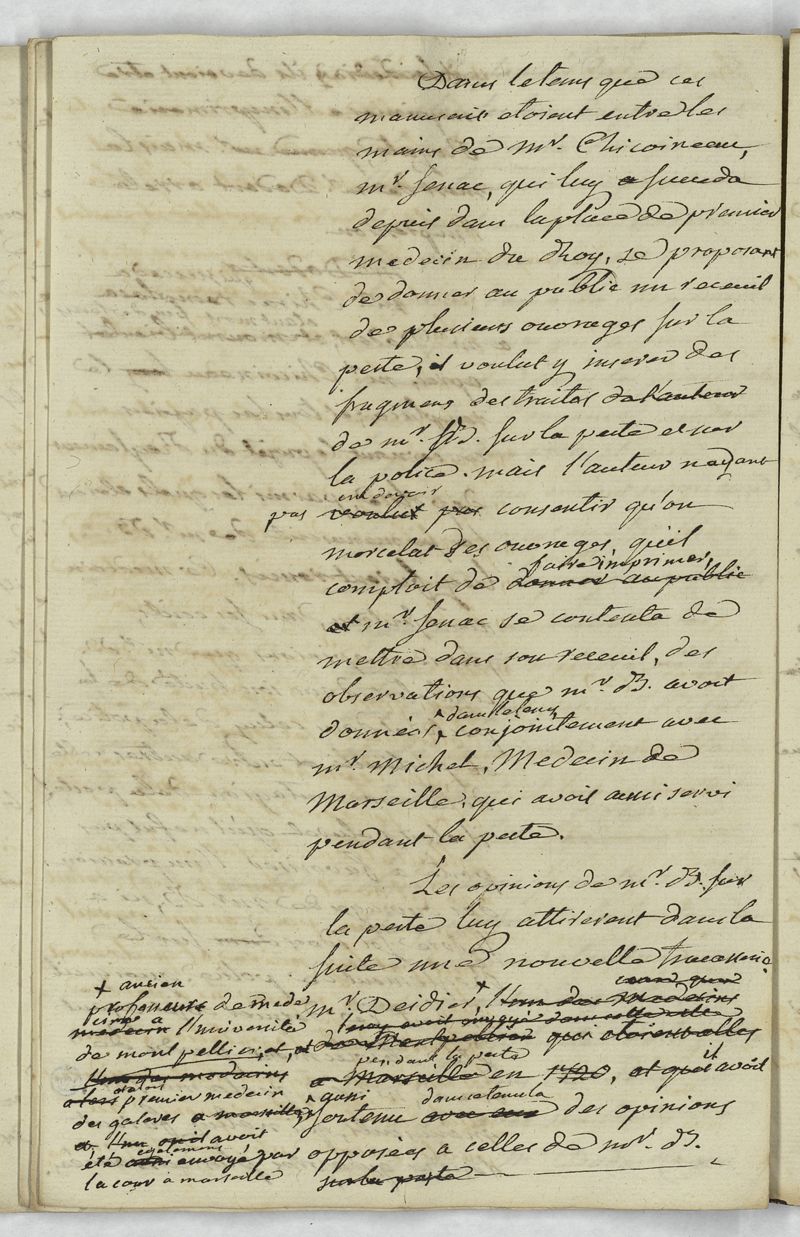 Dans le tems que ces
manuscrits etoient entre les
mains de mr. Chicoineau,
mr. Senac, qui luy a succeda
depuis dans la place de premier
medecin du Roy, se proposant
de donner au public un receuil
de plusieurs ouvrages sur la
peste, il voulut y inserer des
fragmens des traités de l'auteur
de mr. B. sur la peste et sur
la police. mais l'auteur n'ayant
cru devoir
pas voulut pas consentir qu'on
morcelat ses ouvrages, qu'il
faire imprimer,
comptoit de donner au public
et mr. Senac se contenta de
mettre dans son receuil, des
observations que mr. B. avoit
dans le tems
données, conjointement avec
mr. Michel, Medecin de
Marseille, qui avoit aussi servi
pendant la peste.
Les opinions de mr. B. sur
la peste luy attirerent dans la
suite une nouvelle tracasserie.
mr. Deidier, + l'un des medecins
que la cour avoit envoyé
de Montpellier qui
pendant la peste
a Marseille en 1720, et qui avoit
dans le tems la
soutenu avec eux des opinions
opposées a celles de mr. B.
sur la peste
+ ancien
professeur de mede
cine a
medecin l'université
de montpellier, et
l'un des medecins
alors premier medecin
des galeres a marseille, qui
avoit
egalement
été aussi envoyé par
la cour a marseille